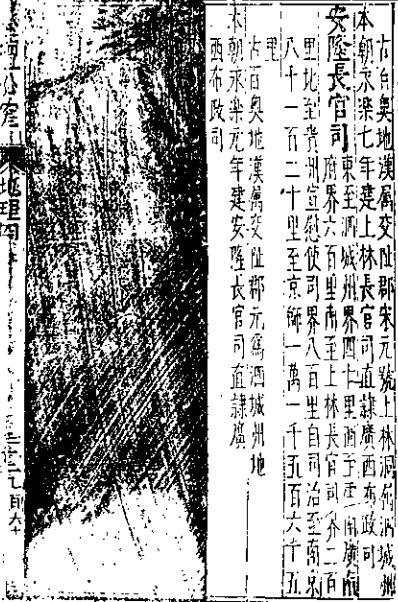 古百奧地漢屬交阯郡宋元號上林洞 泗城州
本朝永樂七年建上林長官司直隸廣西布政司
安隆長官司
東至泗城州界四十里西至雲南廣南
府界六百里南至上林長官司界二百
里地至貴州宣慰使司界八百里自司治至南京
八十一百二十里至京師一萬一千五百六十五
里
古百奧地漢屬交阯郡元為泗城州地
本朝永樂元年建安隆長官司直隸廣
西布政司
地理四